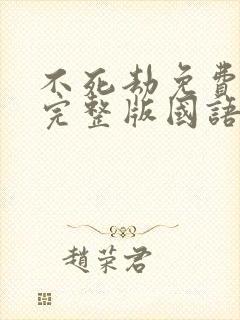 不死劫免費
完整版國語
趙荣君